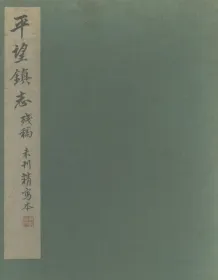 平望鎮志
殘稿
未刊精寫本